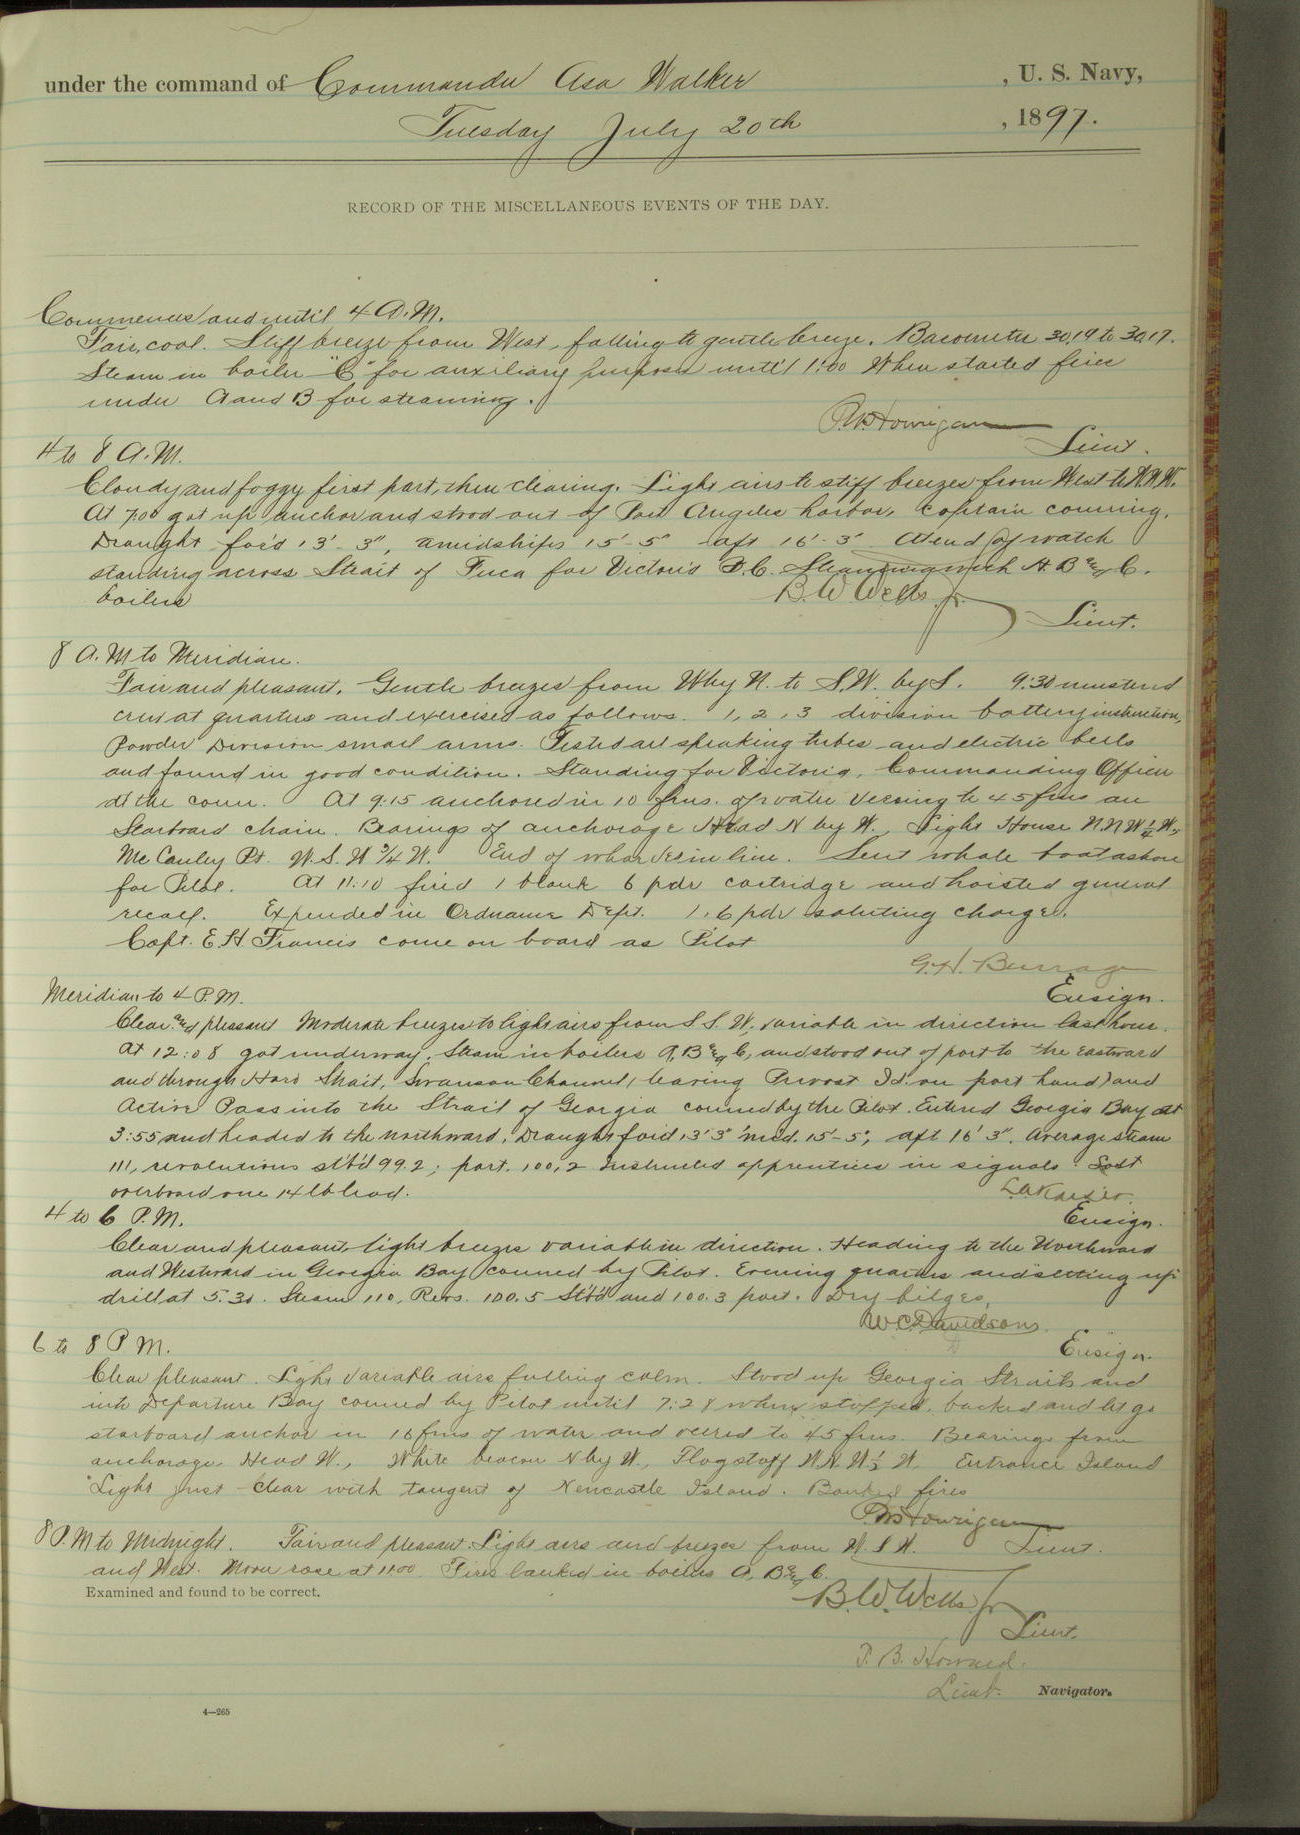 under the command of Commander Asa Walker, U. S. Navy,
Tuesday July 20th, 1897.
RECORD OF THE MISCELLANEOUS EVENTS OF THE DAY.
Commences and until 4 A.M.
Fair, cool. Stiff breeze from West, falling to gentle breeze. Barometer 30.19 to 30.17.
Steam in boiler "C" for auxiliary purposes until 1:00 When started fires
under A and B for steaming.
P.W. Hourigan
Lieut.
4 to 8 A.M.
Cloudy and foggy first part, then clearing. Light airs to stiff breezes from West to W.N.W.
At 7:00 got up anchor and stood out of Port Angeles harbor, Captain conning.
Draught for'd 13'-3", amidships 15'-5" aft 16'-3" At end of watch
standing across Strait of Fuca for Victoria B.C. Steaming with A. B and C.
boilers
B. W. Wells Jr.
Lieut.
8 A.M to Meridian.
Fair and pleasant. Gentle breezes from W by N. to S.W. by S. 9:30 mustered
crew at quarters and exercised as follows. 1, 2, 3 division battery instruction,
Powder Division small arms. Tested all speaking tubes and electric bells
and found in good condition. Standing for Victoria, Commanding Officer
at the conn. At 9:15 anchored in 10 fms. of water veering to 45 fms on
Starboard chain. Bearings of anchorage Head N by W., Light House N.N.W 1/4 W.,
McCauley Pt. W.S.W 3/4 W. End of wharves in line. Sent whale boat ashore
for Pilot. At 11:10 fired 1 blank 6 pdr cartridge and hoisted general
recall. Expended in Ordnance Dept. 1, 6 pdr saluting charge.
Capt. E H Francis come on board as Pilot
G.H. Burrage
Ensign.
Meridian to 4 P.M.
Clear and pleasant Moderate breezes to light airs from S S. W, variable in direction last hour.
At 12:08 got underway, Steam in boilers A, B and C, and stood out of port to the Eastward
and through Haro Strait, Swanson Channel, (leaving Prevost Id. on port hand) and
Active Pass into the Strait of Georgia conned by the Pilot. Entered Georgia Bay at
3:55 and headed to the northward, Draught for'd 13' 3" mid. 15'-5", aft 16' 3". Average steam
111, revolutions stb'd 99.2; port. 100.2 Instructed apprentices in signals. Lost
overboard one 14 lb lead.
L.A. Kaiser.
Ensign.
4 to 6 P.M.
Clear and pleasant, light breezes variable in direction. Heading to the Northward
and Westward in Georgia Bay conned by Pilot. Evening quarters and "setting up"
drill at 5.30. Steam 110, Revs. 100.5 Stb'd and 100.3 port. Dry bilges,
W C Davidson.
Ensign.
6 to 8 P M.
Clear pleasant. Light variable airs falling calm. Stood up Georgia Straits and
into Departure Bay conned by Pilot until 7:28 when stopped, backed and let go
starboard anchor in 16 fms of water and veered to 45 fms. Bearings from
anchorage, Head W., White beacon N by W., Flagstaff W.N.W 1/2 W. Entrance Island
Light just clear with tangent of Newcastle Island. Banked fires
P.W. Hourigan
Lieut.
8 P.M to Midnight. Fair and pleasant. Light airs and breezes from W. S W.
and West. Moon rose at 11:00. Fires banked in boilers A, B and C.
Examined and found to be correct.
B. W. Wells Jr
Lieut.
T. B. Howard.
Lieut. Navigator.
4—265